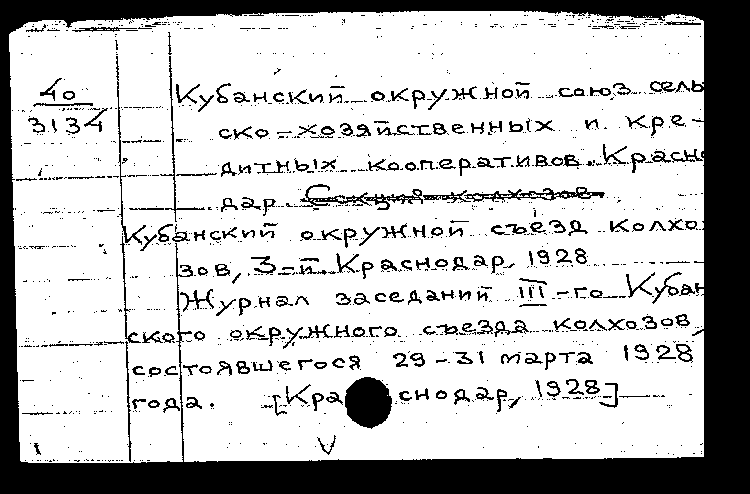 40
3134
Кубанский окружной союз сель
ско-хозяйственных и кре-
дитных кооперативов. Красно
дар. Секция колхозов
Кубанский окружной съезд колхо
зов, 3-й. Краснодар, 1928
Журнал заседаний III-го Кубан
ского окружного съезда колхозов,
состоявшегося 29-31 марта 1928
года. [Краснодар, 1928]